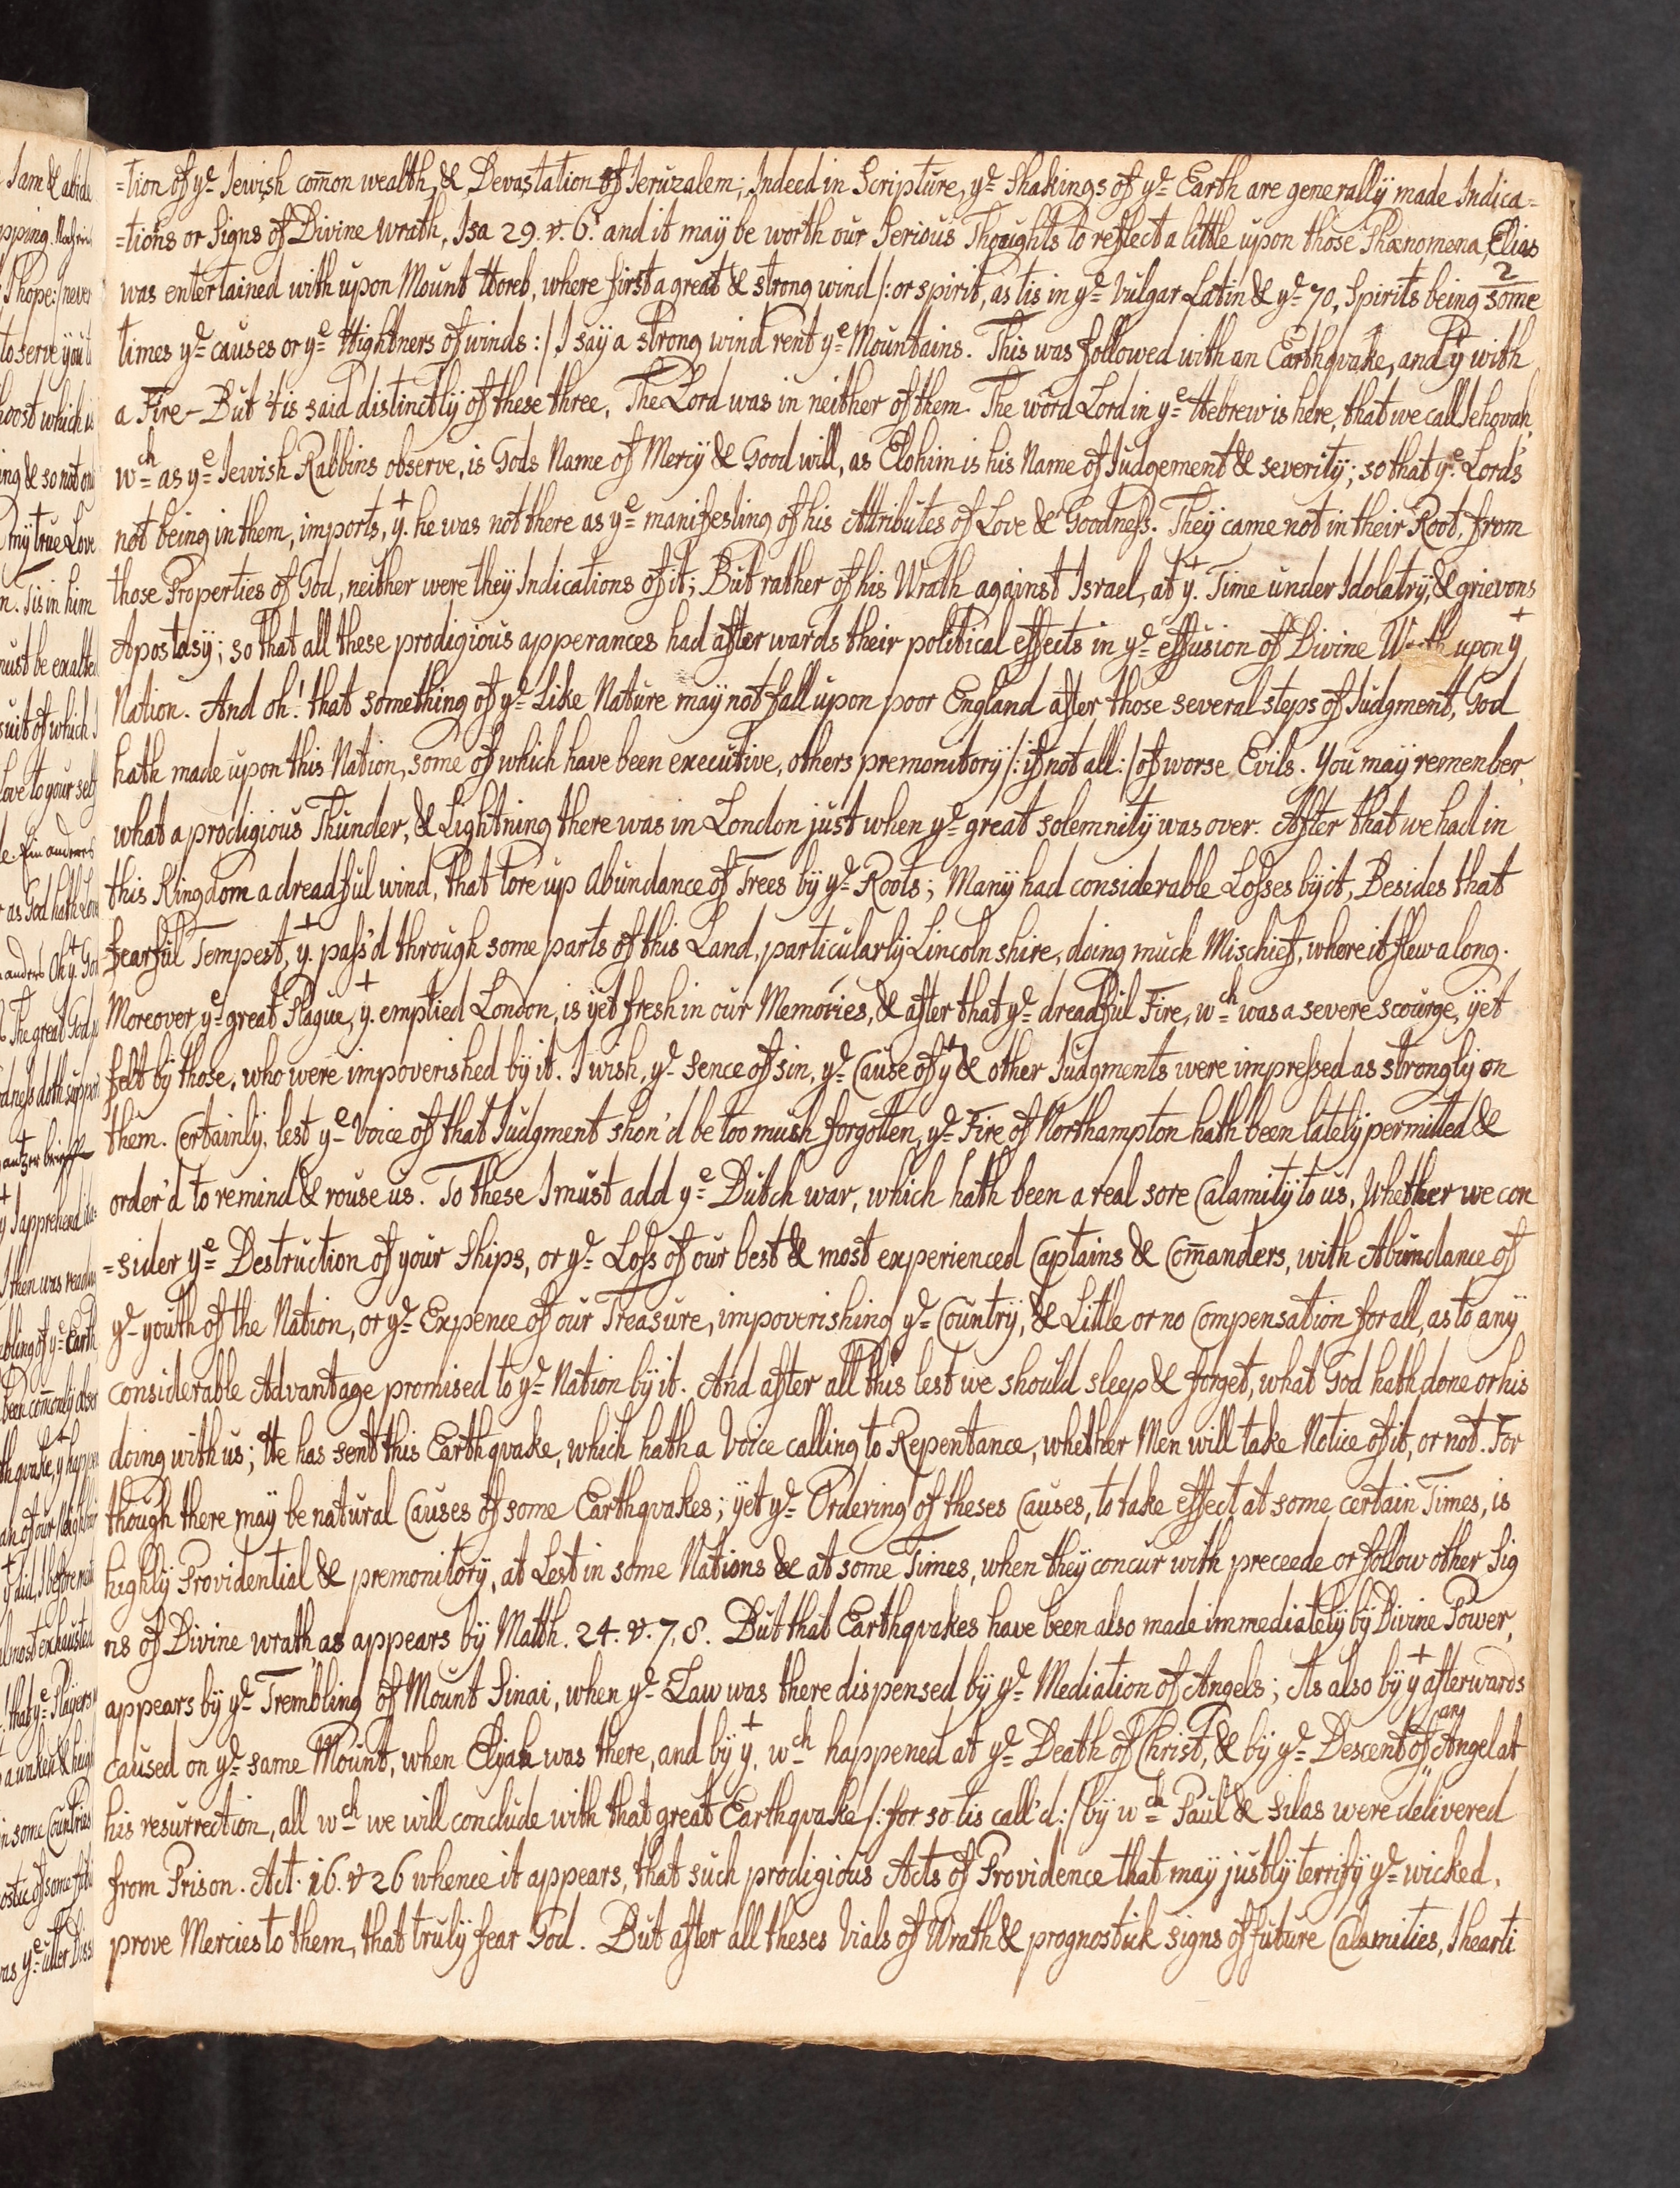 =tion of yᵉ Jewish com̄on wealth, & Devastation of Jeruzalem; Indeed in Scripture, yᵉ Shakings of yᵉ Earth are generally made Indica=
=tions or Signs of Divine wrath, Isa 29. v. 6. and it may be worth our Serious Thoughts to reflect a little upon those Phænomena, Elias
2
was entertained with upon Mount Horeb, where first a great & strong wind /: or spirit, as tis in yᵉ Vulgar Latin & yᵉ 70, Spirits being some
times yᵉ causes or yᵉ Hightners of winds :/ I say a strong wind rent yᵉ Mountains. This was followed with an Earthqvake, and yᵗ with
a Fire - But 'tis said distinctly of these three, The Lord was in neither of them. The word Lord in yᵉ Hebrew is here, that we call Jehovah,
wᶜʰ as yᵉ Jewish Rabbins observe, is Gods Name of Mercy & Good will, as Elohim is his Name of Judgement & severity; so that yᵉ Lord's
not being in them, imports, yᵗ. he was not there as yᵉ manifesting of his Attributes of Love & Goodneſs. They came not in their Root, from
those Properties of God, neither were they Indications of it; But rather of his Wrath against Israel, at yᵗ. Time under Idolatry, & grievons
Apostasy; so that all these prodigious apperances had after wards their political effects in yᵉ effusion of Divine upon yᵗ
Nation. And oh! that something of yᵉ Like Nature may not fall upon poor England after those several steps of Judgment, God
hath made upon this Nation, some of which have been executive, others premonitory /: if not all :/ of worse Evils. You may remenber,
what a prodigious Thunder, & Lightning there was in London just when yᵉ great solemnity was over. After that we had in
this Kingdom a dreadful wind, that tore up Abundance of Trees by yᵉ Roots; Many had considerable Loſses by it, Besides that
fearful Tempest, yᵗ. paſs'd through some parts of this Land, particularly Lincoln shire, doing muck Mischief, where it flew along.
Moreover yᵉ great Plague, yᵗ. emptied London, is yet fresh in our Memories, & after that yᵉ dreadful Fire, wᶜʰ was a severe scourge, yet
felt by those, who were impoverished by it. I wish, yᵉ sence of sin, yᵉ Cause of yᵗ & other Judgments were impreſsed as strongly on
them. Certainly, lest yᵉ Voice of that Judgment shon'd be too mush forgotten, yᵉ Fire of Northampton hath been lately permitted &
order'd to remind & rouse us. To these I must add yᵉ Dutch war, which hath been a real sore Calamity to us, Whether we con
=sider yᵉ Destruction of your Ships, or yᵉ Loſs of our best & most experienced Captains & Com̄anders, with Abundance of
yᵉ youth of the Nation, or yᵉ Expence of our Treasure, impoverishing yᵉ Country, & Little or no Compensation for all, as to any
considerable Advantage promised to yᵉ Nation by it. And after all this lest we should sleep & forget, what God hath done or his
doing with us; He has sent this Earthqvake, which hath a Voice calling to Repentance, whether Men will take Notice of it, or not. For
though there may be natural Causes of some Earthqvakes; yet yᵉ Ordering of theses Causes, to take effect at some certain Times, is
highly Providential & premonitory, at Lest in some Nations & at some Times, when they concur with preceede or follow other Sig
ns of Divine wrath, as appears by Matth. 24. v. 7, 8. But that Earthqvakes have been also made immediately by Divine Power,
appears by yᵉ Trembling of Mount Sinai, when yᵉ Law was there dispensed by yᵉ Mediation of Angels; As also by yᵗ afterwards
caused on yᵉ same Mount, when Elijah was there, and by yᵗ. wᶜʰ happened at yᵉ Death of Christ, & by yᵉ Descent of an Angel at
his resurrection, all wᶜʰ we will conclude with that great Earthqvake /: for so tis call'd :/ by wᶜʰ Paul & Silas were delivered
from Prison. Act. 16. v 26 whence it appears, that such prodigious Acts of Providence that may justly terrify yᵉ wicked,
prove Mercies to them, that truly fear God. But after all theses Vials of Wrath & prognostick signs of future Calamities, I hearti